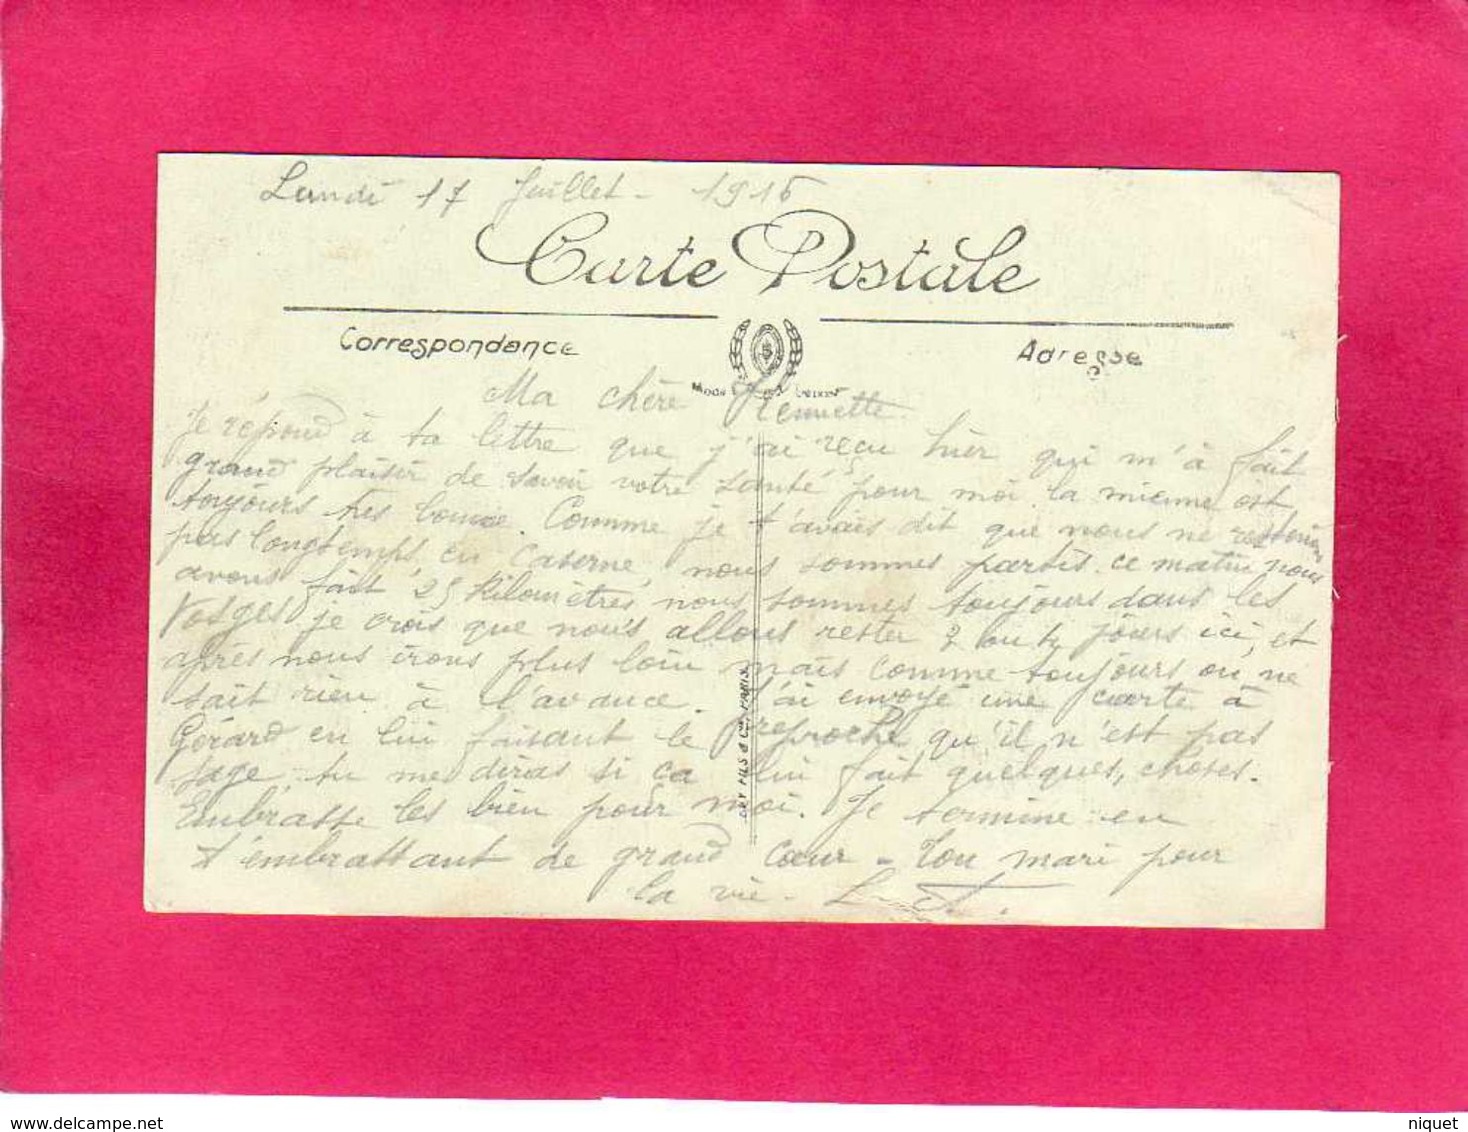 Lundi 17 Juillet - 1916
Carte Postale
Correspondance
Adresse
Ma chère Henriette
Je répond à ta lettre que j'ai reçu hier qui m'à fait
grand plaisir de savoir votre santé pour moi la mienne est
toujours tres bonne. Comme je t'avais dit que nous ne resterions
pas longtemps en caserne, nous sommes partis ce matin nous
avons fait 25 Kilomètres, nous sommes toujours dans les
Vosges je crois que nous allons rester 2 ou 4 jours ici, et
après nous irons plus loin mais comme toujours on ne
sait rien à l'avance. J'ai envoyé une carte à
Gérard en lui faisant le reproche qu'il n'est pas
sage, tu me diras si ça lui fait quelques, choses.
Embrasse les bien pour moi. Je termine en
t'embrassant de grand cœur - Ton mari pour
la vie - L
FILS & Cie PARIS.
niquet